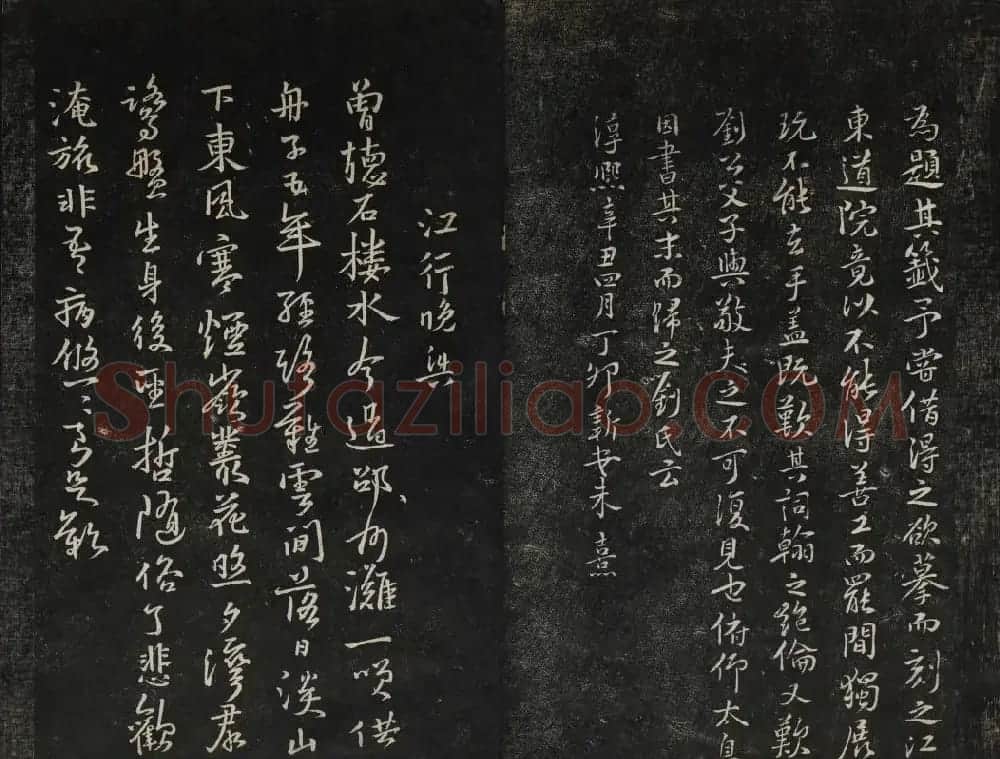 為題其籤予嘗借得之欲摹而刻之江
東道院竟以不能得善工而罷間獨展
玩不能去手蓋既歎其詞翰之絶倫又歎
劉公父子與敬夫之不可復見也俯仰太息
因書其末而歸之劉氏云
淳熙辛丑四月丁卯新安朱熹
江行晚興
曾聴石樓水今過邵州灘一咲供
舟子五年經路難雲間落日淡山
下東風寒煙嶺叢花照夕灣羣
鷺盤生身後聖哲隨俗了悲歡
淹旅非吾病悠〻良足歎
Shufaziliao.COM